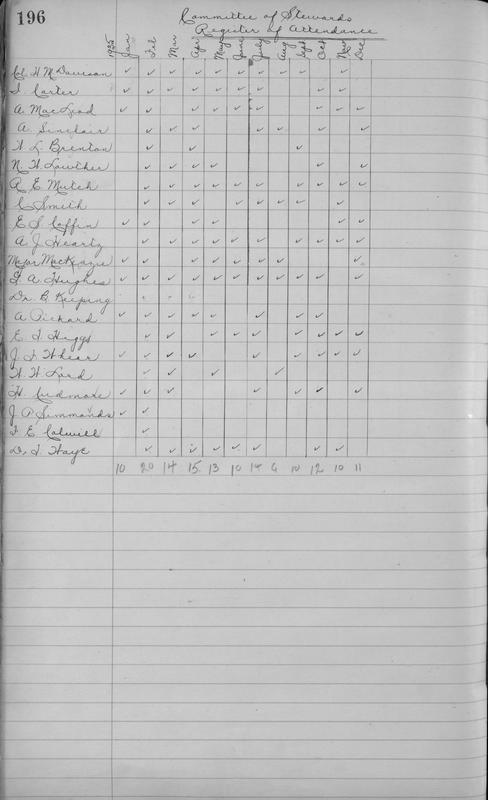 196
Committee of Stewards
Register of Attendance
1935 Jan Feb Mar Apr May June July Aug Sept Oct Nov Dec
Col. H. M. Davison ✓ ✓ ✓ ✓ ✓ ✓ ✓ ✓ ✓ ✓ ✓
I. Carter ✓ ✓ ✓ ✓ ✓ ✓ ✓ ✓ ✓
A. MacLeod ✓ ✓ ✓ ✓ ✓ ✓ ✓ ✓ ✓
A. Sinclair ✓ ✓ ✓ ✓ ✓ ✓ ✓
H. L. Brenton ✓ ✓ ✓
N. H. Lowther ✓ ✓ ✓ ✓ ✓ ✓
R. E. Mutch ✓ ✓ ✓ ✓ ✓ ✓ ✓ ✓ ✓ ✓
C Smith ✓ ✓ ✓ ✓ ✓ ✓ ✓ ✓
E S Coffin ✓ ✓ ✓ ✓ ✓ ✓
A J Heartz ✓ ✓ ✓ ✓ ✓ ✓ ✓ ✓ ✓ ✓
Major MacKenzie ✓ ✓ ✓ ✓ ✓ ✓ ✓ ✓
F. A. Hughes ✓ ✓ ✓ ✓ ✓ ✓ ✓ ✓ ✓ ✓ ✓
Dr. B. Keeping
A Pickard ✓ ✓ ✓ ✓ ✓ ✓ ✓ ✓
E. T. Higgs ✓ ✓ ✓ ✓ ✓ ✓ ✓ ✓ ✓
J. F. Whear ✓ ✓ ✓ ✓ ✓ ✓ ✓ ✓ ✓
W. W. Lord ✓ ✓ ✓ ✓
H. Cudmore ✓ ✓ ✓ ✓ ✓ ✓ ✓
J. P. Simmonds ✓ ✓
F. E. Colwill ✓
D. T. Haye ✓ ✓ ✓ ✓ ✓ ✓ ✓ ✓
10 20 14 15 13 10 14 6 10 12 10 11